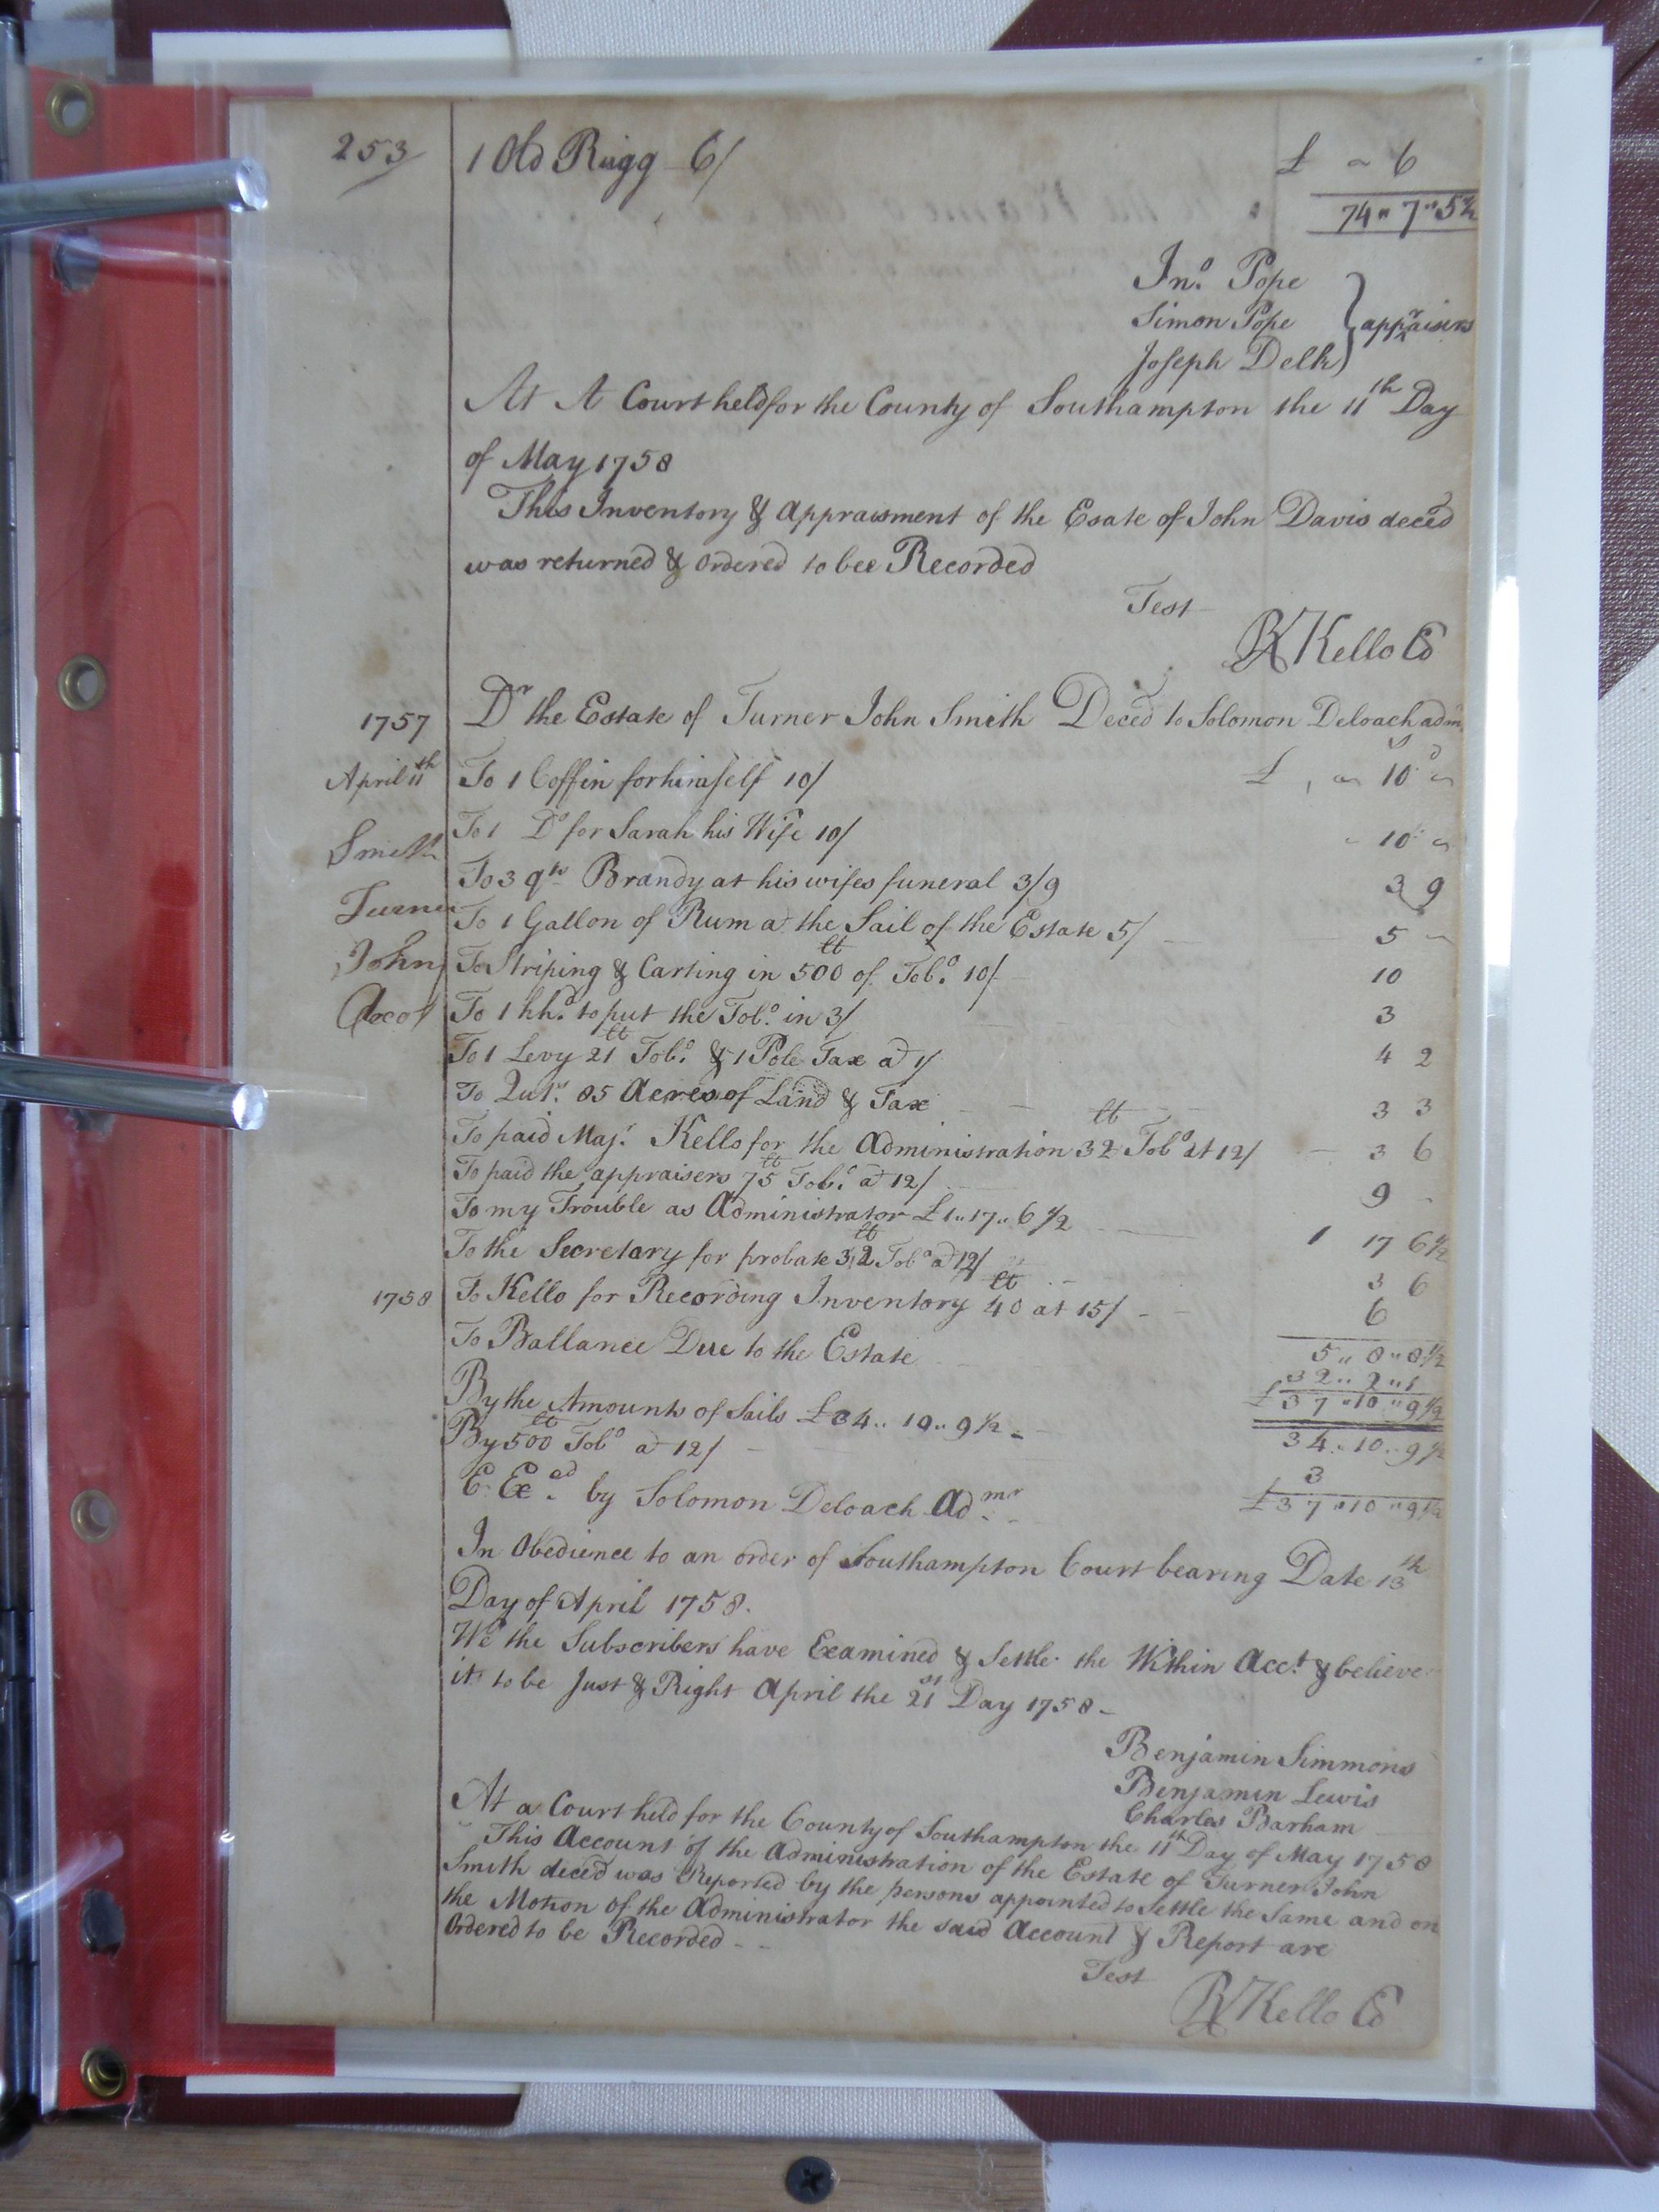 253
1 Old Rugg 6/ £ ~ 6
74 " 7 " 5½
Jno. Pope
Simon Pope } appraisers
Joseph Delk
At A Court held for the County of Southampton the 11th Day
of May 1758
This Inventory & Appraisment of the Esate of John Davis deced
was returned & Ordered to bee Recorded
Test
R Kello C
1757 Dr the Estate of Turner John Smith Deced to Solomon Deloach adm
April 11th To 1 Coffin for himself 10/ £ , ~ 10 ~
Smith To 1 Do for Sarah his Wife 10/ 10 ~
To 3 qts Brandy at his wifes funeral 3/9 3 9
Turner To 1 Gallon of Rum at the Sail of the Estate 5/ 5 ~
John To Striping & Carting in 500 lt of Tobo. 10/ 10
Acct To 1 hhd. to put the Tobo. in 3/ 3
To 1 Levy 21 lt Tobo. & 1 Pole Tax at 1/ 4 2
To Quts. 85 Acres of Land & Tax 3 3
To paid Majr. Kello for the Administration 32 lt Tobo at 12/ 3 6
To paid the appraisers 75 lt Tobo. at 12/ 9 -
To my Trouble as Administrator £1 " 17 " 6½ 1 17 6½
To the Secretary for probate 32 lt Tobo at 12/ 3 6
1758 To Kello for Recording Inventory 40 lt at 15/ 6
5 " 8 " 8½
To Ballance Due to the Estate 32 " 2 " 1
£37 " 10 " 9½
By the Amounts of Sails £34 " 10 " 9½ 34 " 10 " 9½
By 500 lt Tobo at 12/ 3
£37 " 10 " 9½
E. Exed. by Solomon Deloach Admr
In Obedience to an order of Southampton Court bearing Date 13th
Day of April 1758.
We the Subscribers have Examined & Settle the Within Acct. & believe
it to be Just & Right April the 21st Day 1758 -
Benjamin Simmons
Benjamin Lewis
Charles Barham
At a Court held for the County of Southampton the 11th Day of May 1758
This Account of the Administration of the Estate of Turner John
Smith deced was Reported by the persons appointed to Settle the Same and on
the Motion of the Administrator the said Account & Report are
Ordered to be Recorded
Test
R Kello C